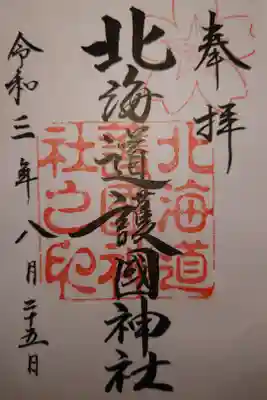 奉拝
北海道護國神社
北海道護國神社之印
令和三年八月二十五日